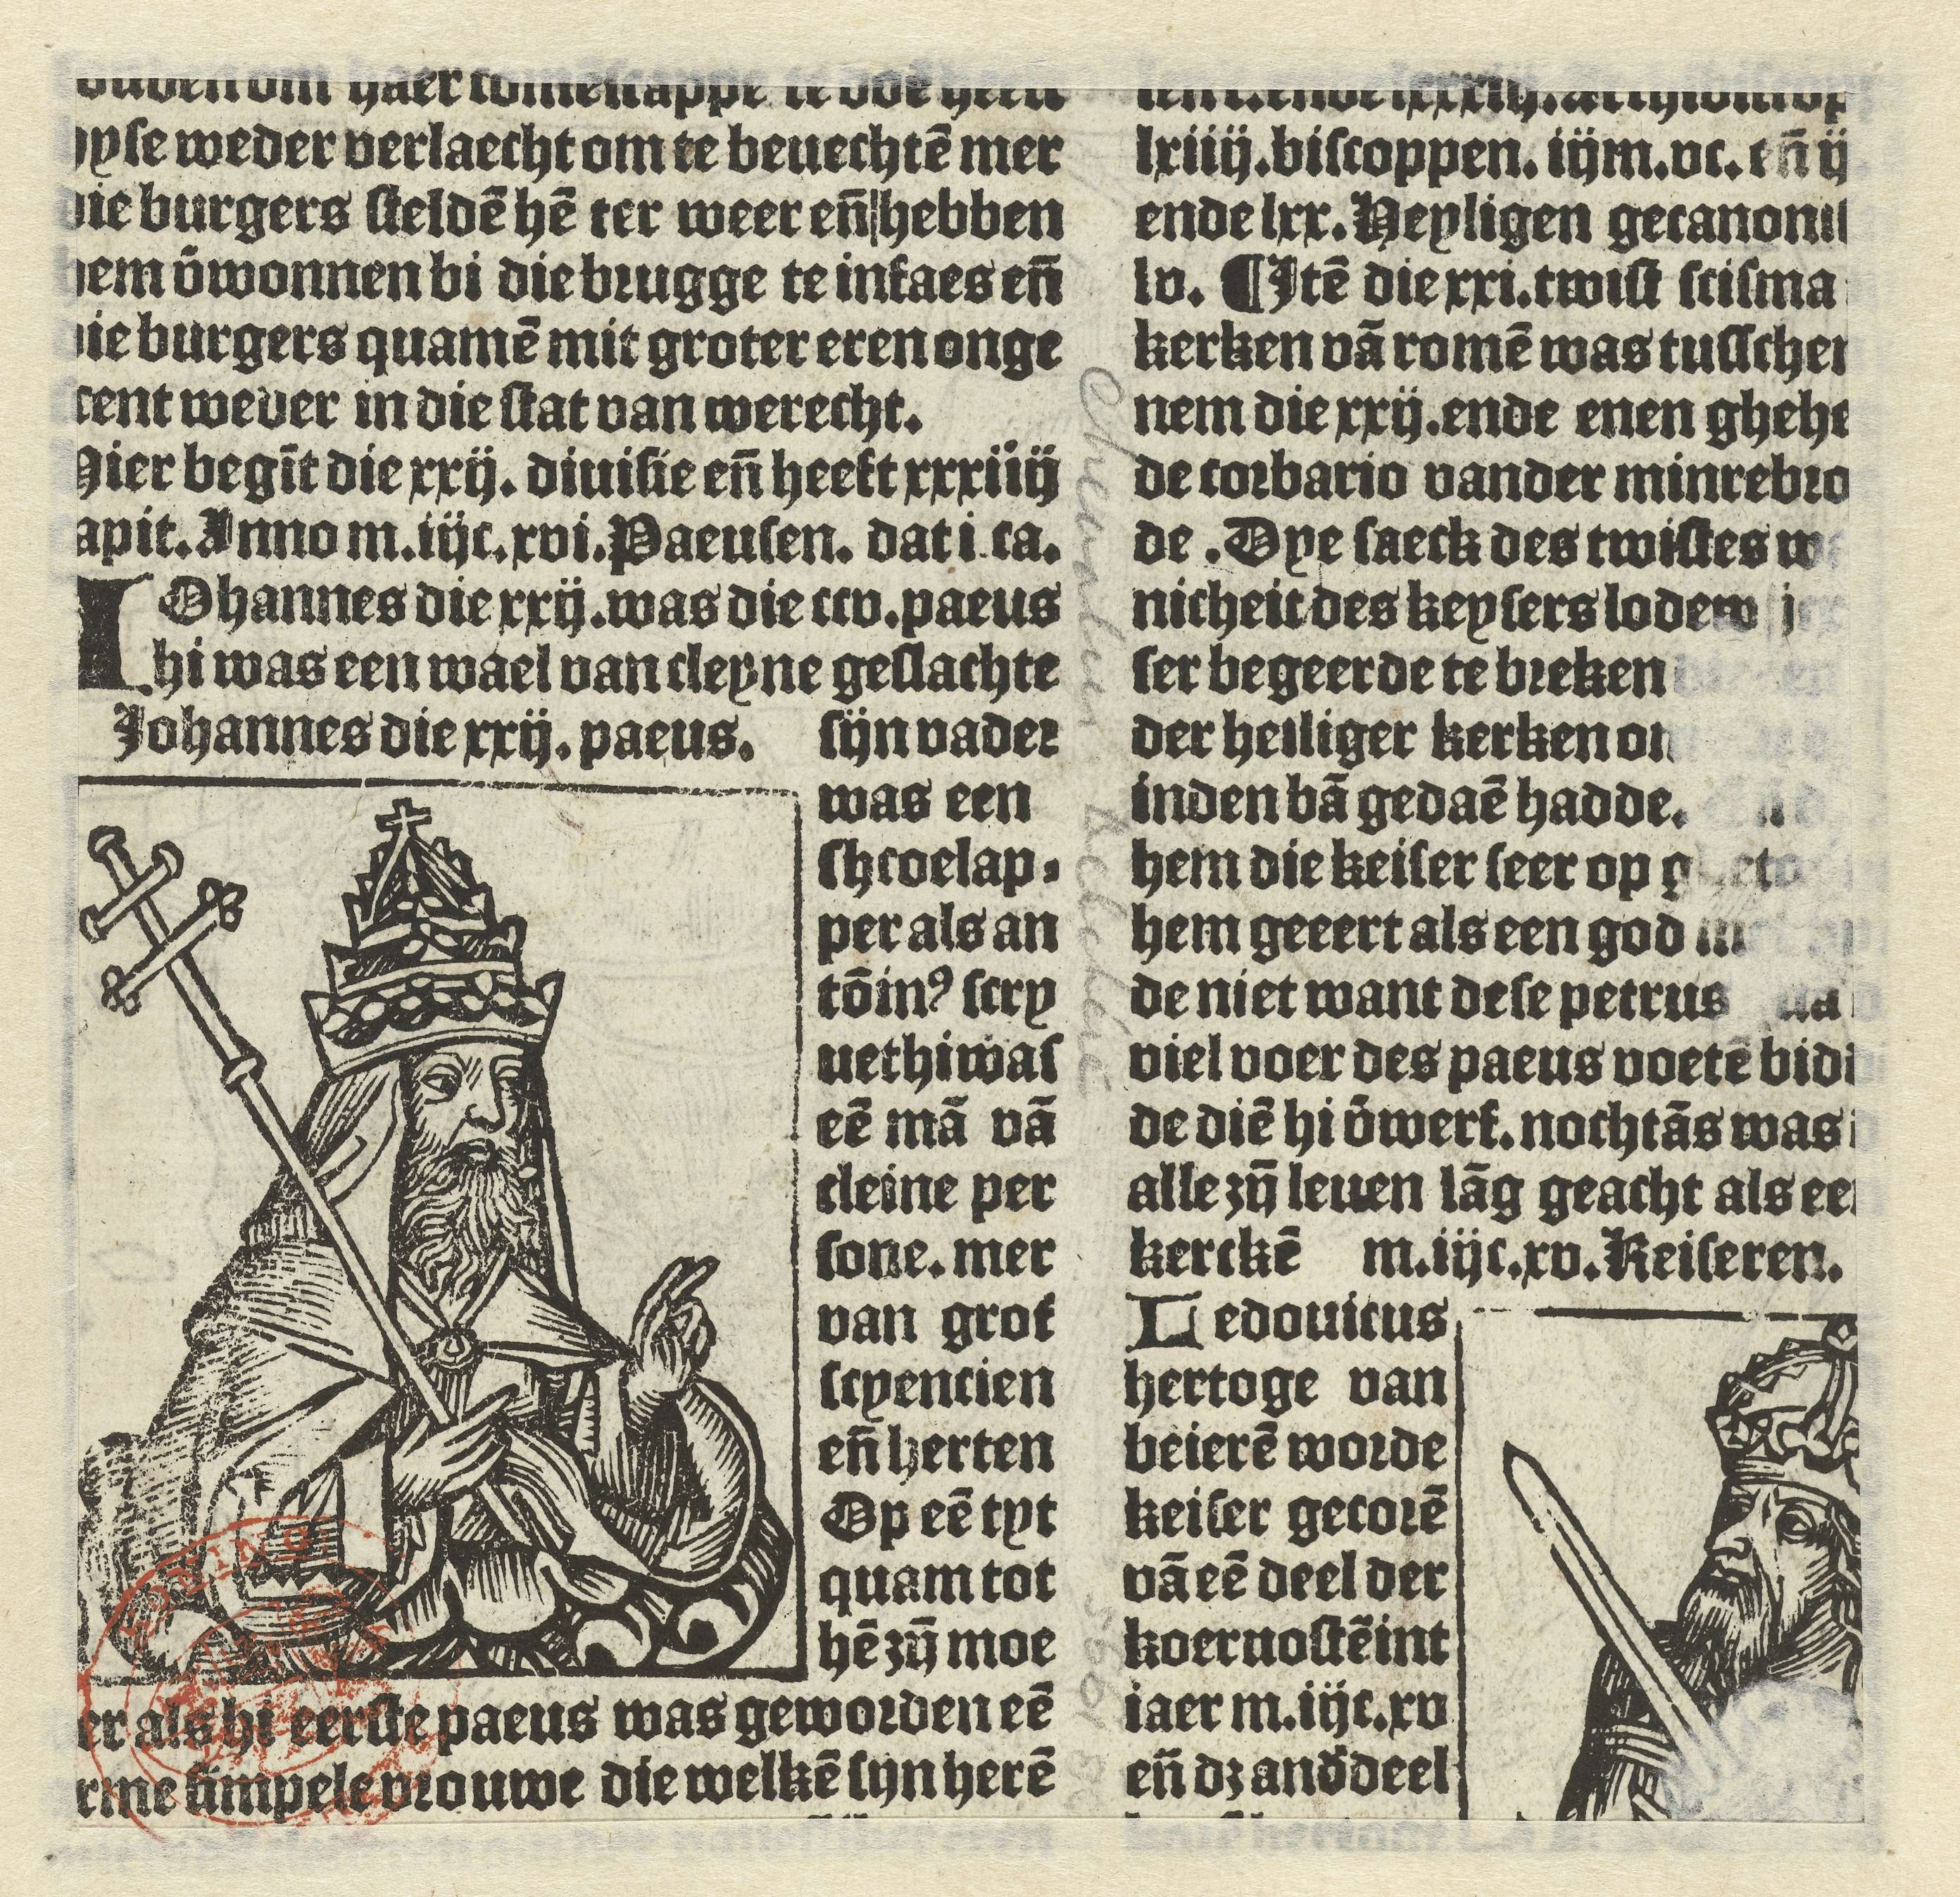 ouden om haer comēscappe te doē heeft
yse weder verlaecht om te beuechtē mer
die burgers steldē hē ter weer en̄ hebben
hem v̄wonnen bi die brugge te infaes en̄
die burgers quamē mit groter eren onge
cent weder in die stat van werecht.
Hier begīt die xxij. diuisie en̄ heeft xxxiiij
apit. Anno m.iijc.xvi. Paeusen. dat i ca.
IOhannes die xxij. was die ccv. paeus
hi was een wael van cleyne geslachte
Johannes die xxij. paeus.
sijn vader
was een
shcoelap
per als an
tōinꝰ scry
uet hi was
eē mā vā
cleine per
sone. mer
van grot
scyencien
en̄ herten
Op eē tyt
quam tot
hē zyn̄ moe
er als hi eerste paeus was geworden eē
rme simpele vrouwe die welkē syn herē
lxiiij. biscoppen. iijm.vc. en̄ ij
ende lxx. Heyligen gecanoni
lv. ¶ Itē die xxi. twist scisma
kerken vā romē was tusschen
nem die xxij. ende enen ghehe
de corbario vander minrebro
de. Dye saeck des twistes w
nicheit des keysers lodew
ser begeerde te breken
der heiliger kerken on
inden bā gedaē hadde.
hem die keiser seer op g
hem geeert als een god
de niet want dese petrus
viel voer des paeus voetē bid
de diē hi v̄werf. nochtās was
alle zyn̄ leuen lāg geacht als ee
kerckē m.iijc.xv. Keiseren.
Ledouicus
hertoge van
beierē worde
keiser gecorē
vā eē deel der
koeruostē int
iaer m.iijc.xv
en̄ dz and̄deel